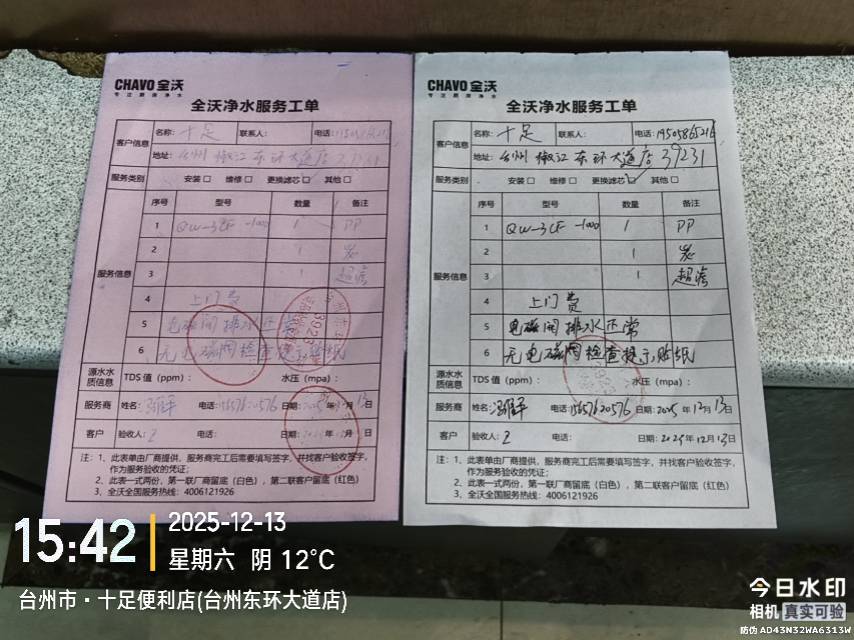 CHAVO 全沃
专注厨房净水
全沃净水服务工单
客户信息
名称: 十足 联系人: 电话:
地址: 台州 椒江 东环大道店 39231
服务类别 安装 □ 维修 □ 更换滤芯 □ 其他 □
服务信息
序号 型号 数量 备注
1 QW-3CF-1000 1 PP
2 1 炭
3 1 超滤
4 上门费
5 电磁阀排水正常
6 无电磁阀检查提示贴纸
源水水质信息 TDS 值（ppm）: 水压（mpa）:
服务商 姓名: 电话: 日期: 2025 年 12 月 13 日
客户 验收人: 电话: 日期:
注：1、此表单由厂商提供，服务商完工后需要填写签字，并找客户验收签字，
作为服务验收的凭证；
2、此表一式两份，第一联厂商留底（白色），第二联客户留底（红色）
3、全沃全国服务热线：4006121926
CHAVO 全沃
专注厨房净水
全沃净水服务工单
客户信息
名称: 十足 联系人: 电话: 19505865216
地址: 台州 椒江 东环大道店 39231
服务类别 安装 □ 维修 □ 更换滤芯 ☑ 其他 □
服务信息
序号 型号 数量 备注
1 QW-3CF-1000 1 PP
2 1 炭
3 1 超滤
4 上门费
5 电磁阀排水正常
6 无电磁阀检查提示贴纸
源水水质信息 TDS 值（ppm）: 水压（mpa）:
服务商 姓名: 电话: 15657620576 日期: 2025 年 12 月 13 日
客户 验收人: 电话: 日期: 2025 年 12 月 13 日
注：1、此表单由厂商提供，服务商完工后需要填写签字，并找客户验收签字，
作为服务验收的凭证；
2、此表一式两份，第一联厂商留底（白色），第二联客户留底（红色）
3、全沃全国服务热线：4006121926
15:42
2025-12-13
星期六 阴 12°C
台州市·十足便利店(台州东环大道店)
今日水印
相机 真实可验
防伪 AD43N32WA6313W